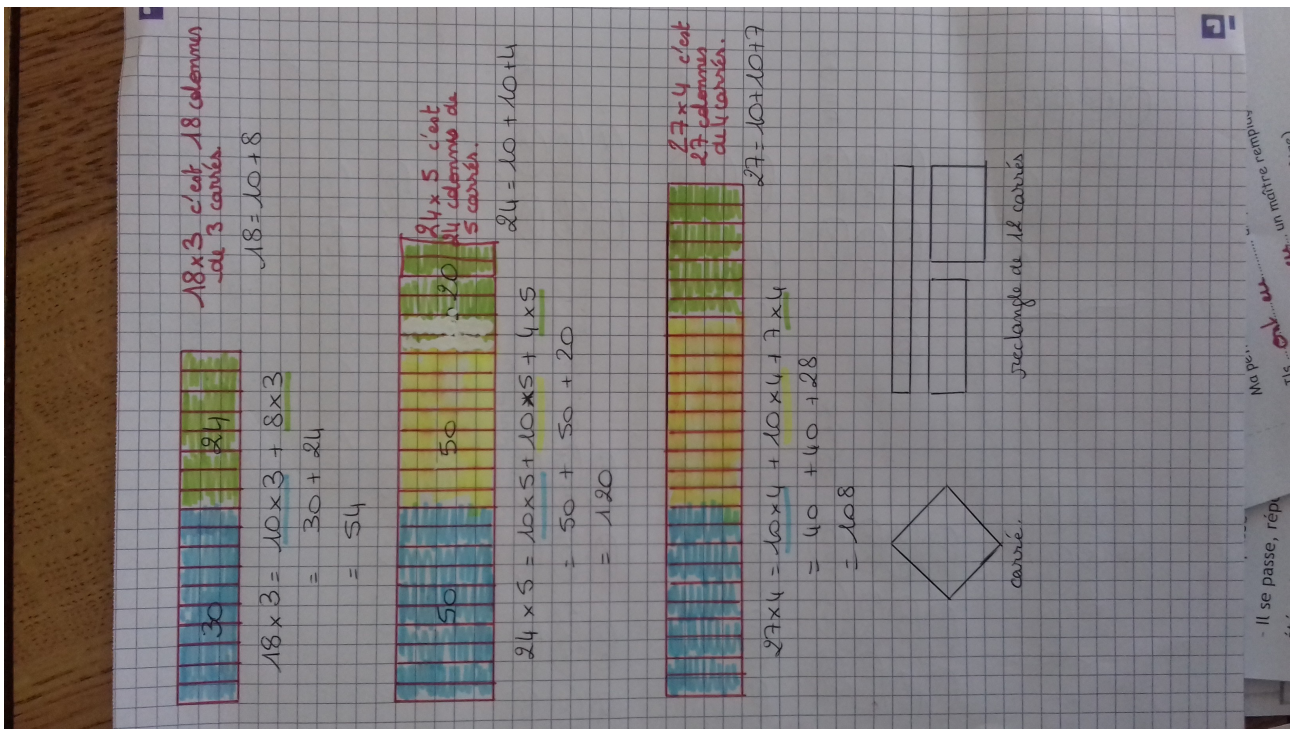 18×3 c'est 18 colonnes
de 3 carrés.
18 = 10 + 8
30
24
18×3 = 10×3 + 8×3
= 30 + 24
= 54
24×5 c'est
24 colonnes de
5 carrés.
24 = 10 + 10 + 4
50
50
20
24×5 = 10×5 + 10×5 + 4×5
= 50 + 50 + 20
= 120
27×4 c'est
27 colonnes
de 4 carrés.
27 = 10+10+7
27×4 = 10×4 + 10×4 + 7×4
= 40 + 40 + 28
= 108
carré.
rectangle de 12 carrés
un maître
- Il se passe,